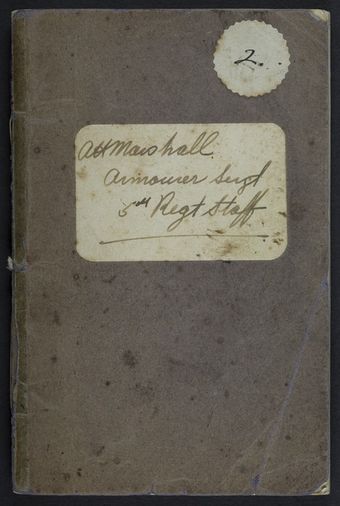 2.
Att Marshall.
Armourer Sergt
5th Regt Staff